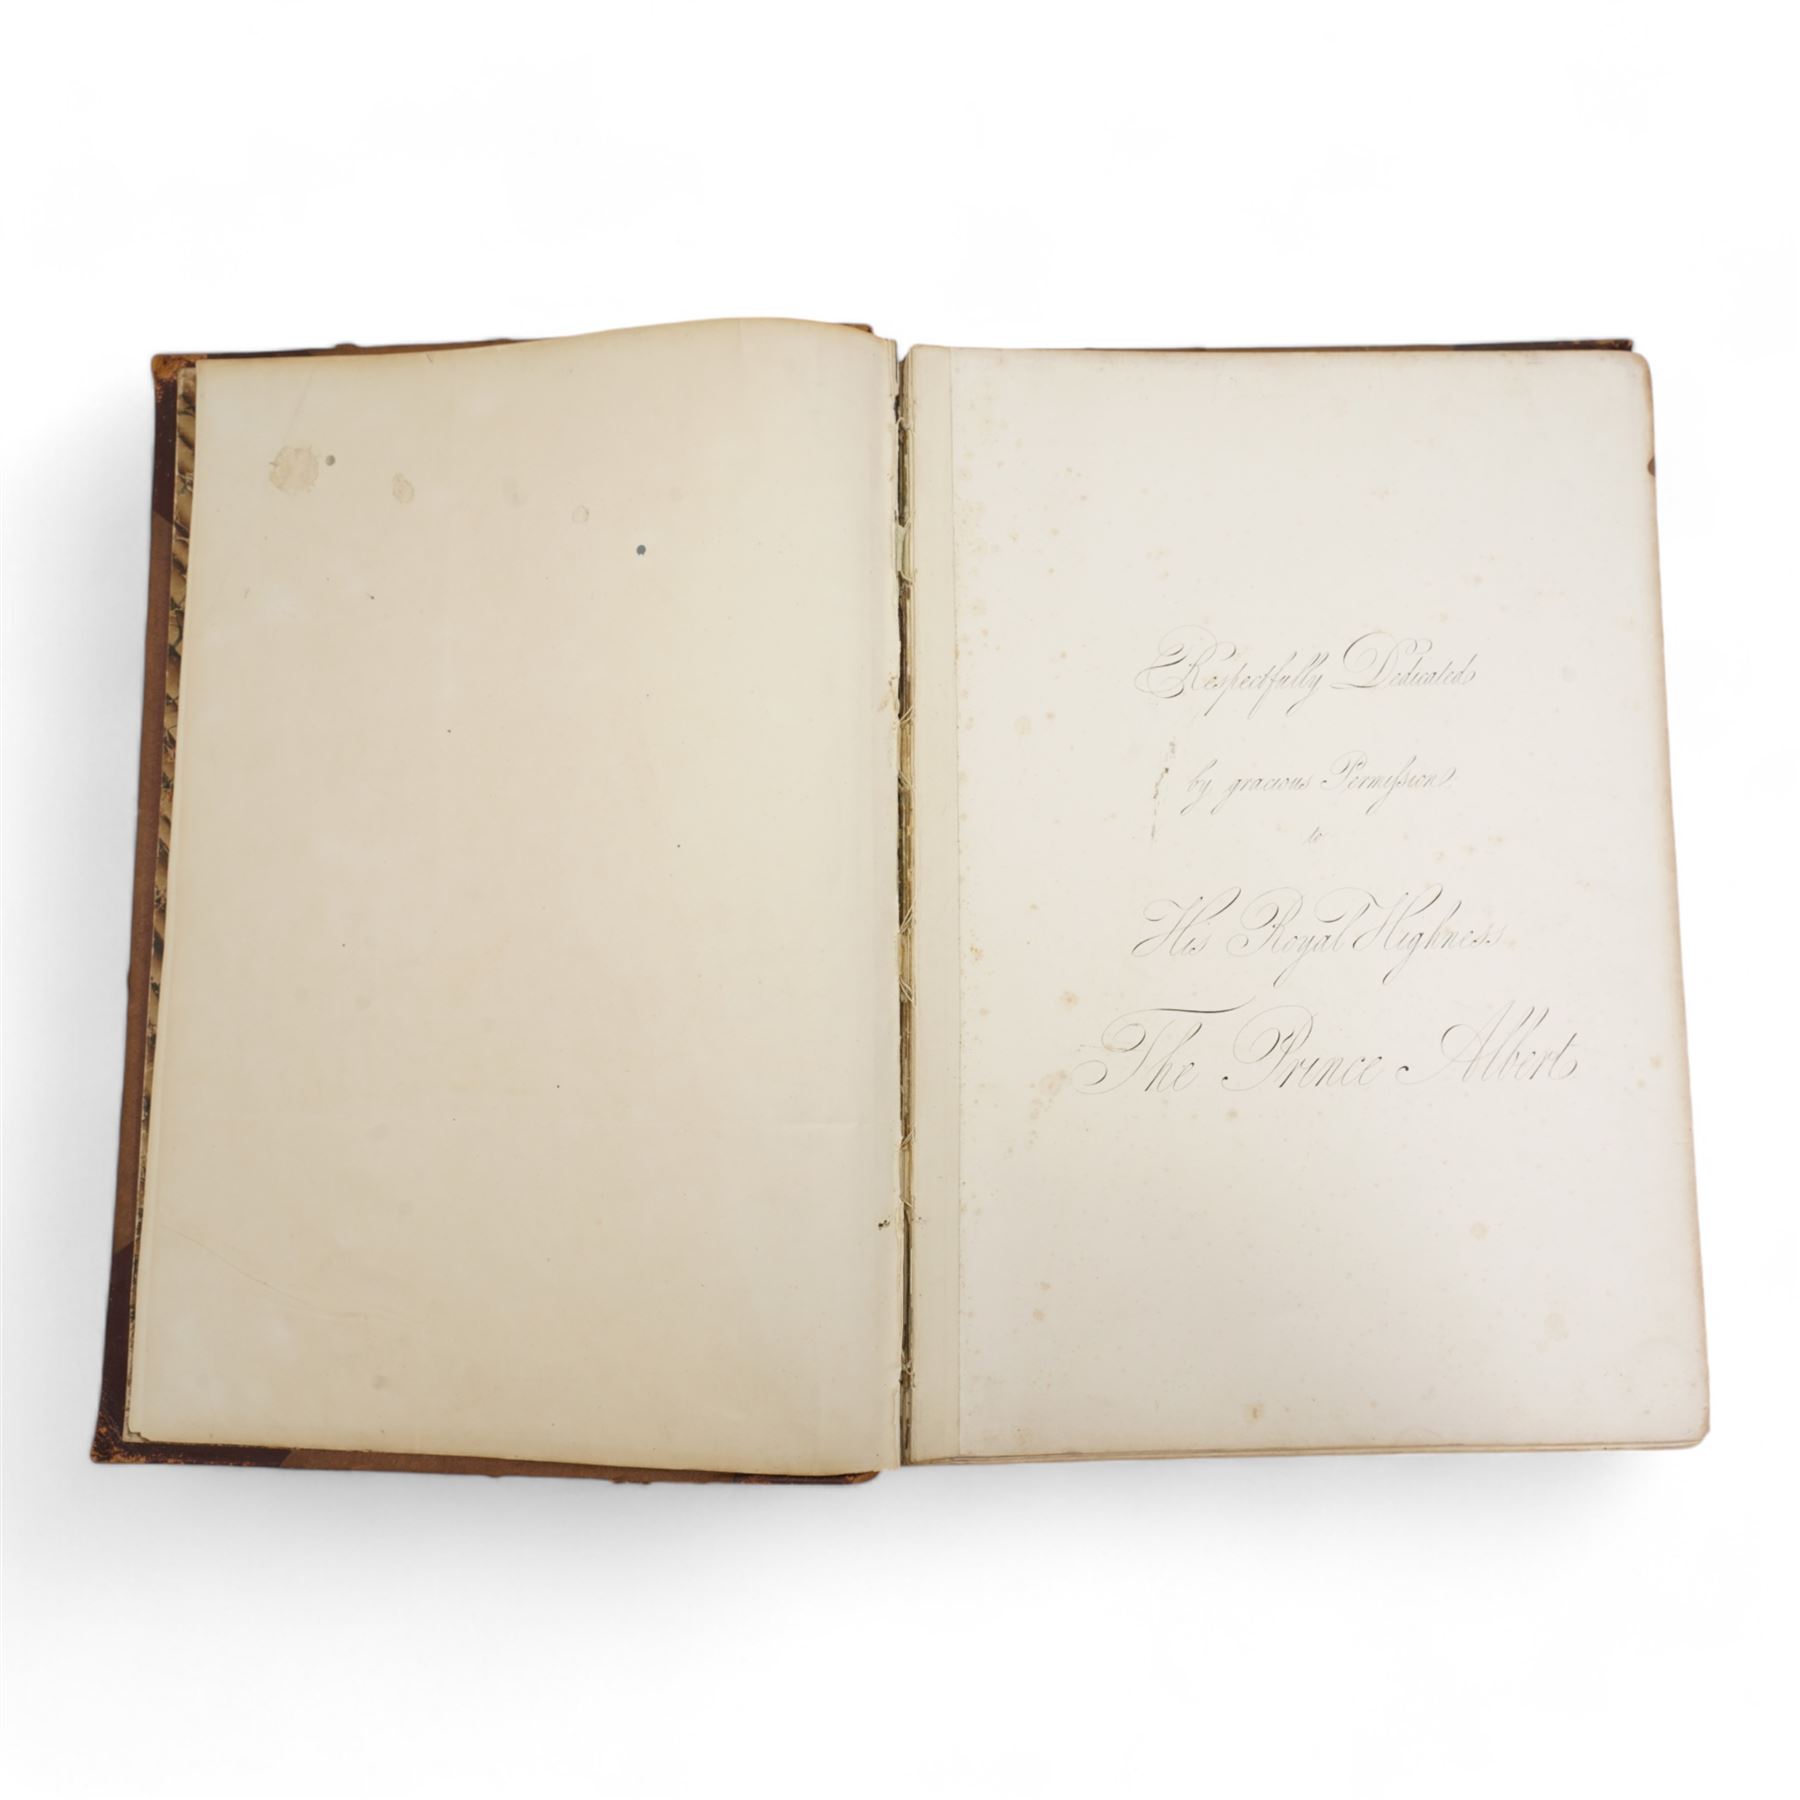 Respectfully Dedicated
by gracious Permission
to
His Royal Highness
The Prince Albert